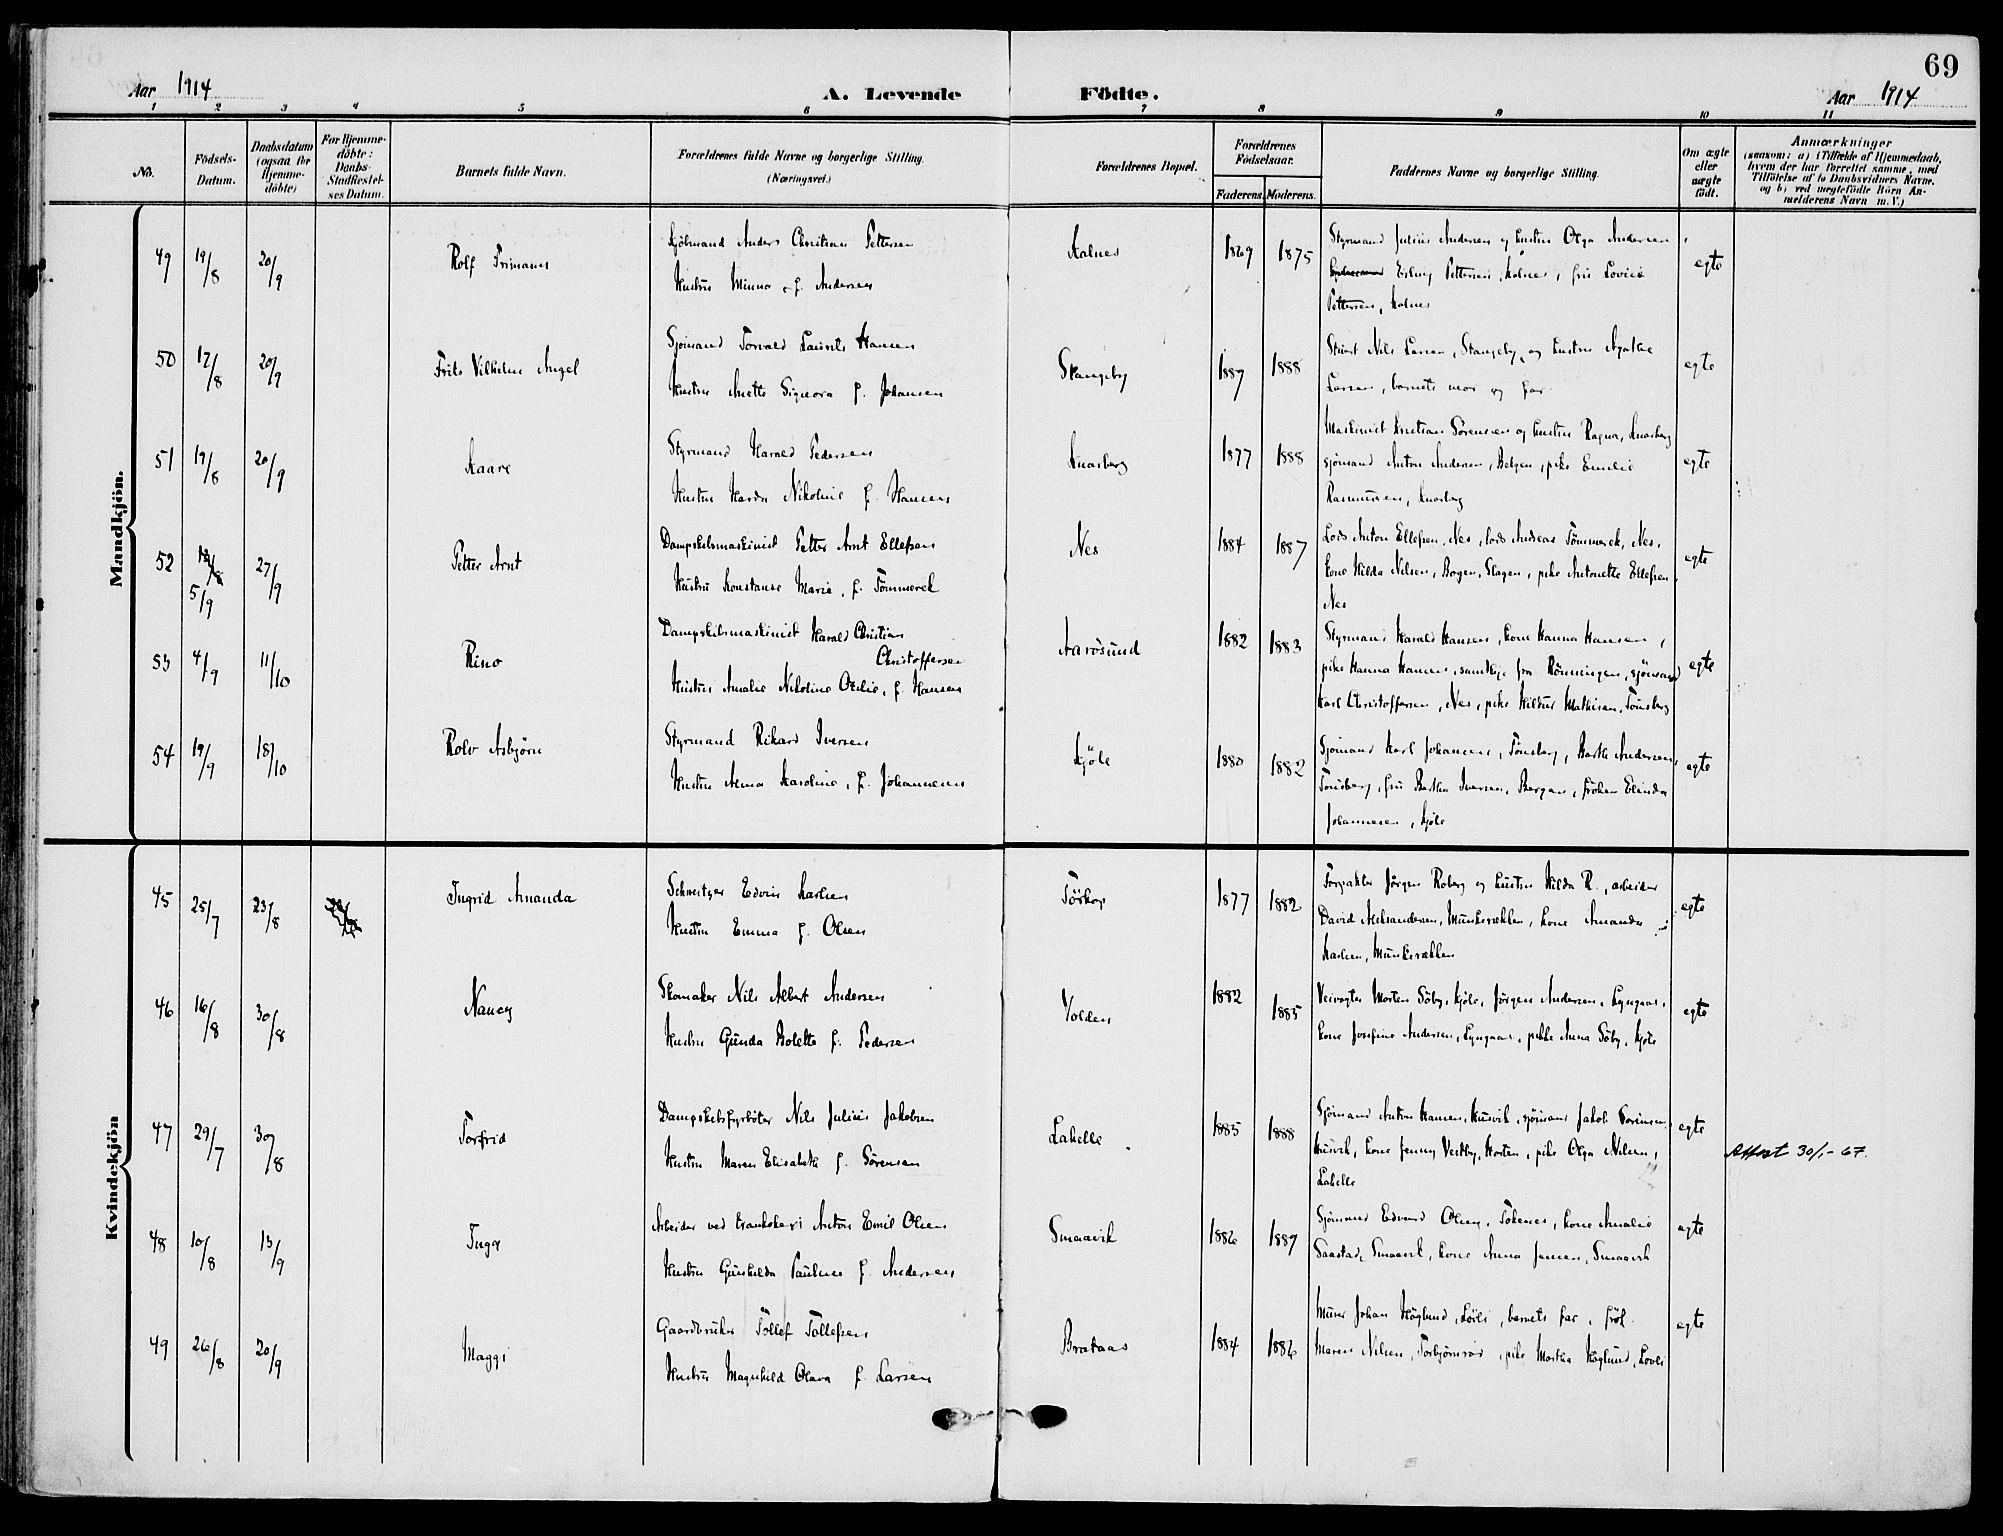 69
Aar 1914
A. Levende Födte.
Aar 1914
1 2 3 4 5 6 7 8 9 10 11
No.
Födsels-Datum.
Daabsdatum (ogsaa for Hjemme-döbte)
For Hjemme-döbte: Daabs-Stadfæstel-ses Datum.
Barnets fulde Navn.
Forældrenes fulde Navne og borgerlige Stilling. (Næringsvei.)
Forældrenes Bopæl.
Forældrenes Födselsaar.
Faderens. Moderens.
Faddernes Navne og borgerlige Stilling.
Om ægte eller uægte født.
Anmærkninger
(saasom: a) i Tilfælde af Hjemmedaab, hvem der har forrettet samme, med Tilföielse af to Daabsvidners Navne, og b) ved uægtefödte Börn An-melderens Navn m. V.)
Mandkjön.
49 19/8 20/9 Rolf
Anders Christian Pettersen
Hustru Minna f. Andersen
1869 1875
Styrmand Julius Andersen og hustru Olga Andersen
Erling Pettersen, fru Lovise
Pettersen,
egte
50 17/8 20/9 Frits Vilhelm Angel
Sjømand Torvald Laurits Hansen
Hustru Anette Signora f. Johansen
Skangeby 1887 1888
Stuert Nils Larsen, Stangeby, og hustru Agathe
Larsen, barnets mor og far
egte
51 19/8 20/9 Kaare
Styrmand Harald Pedersen
Hustru Harda Nikoline f. Hansen
Knarberg 1877 1888
Maskinist Kristian Sørensen og hustru Ragna, Knarberg
sjømand Anton Andersen, Bolgen, pike Emilie
Rasmussen, Knarberg
egte
52 5/9 27/9 Petter Arnt
Dampskibsmaskinist Petter Arnt Ellefsen
Hustru Konstanse Marie, f. Tømmerek
Nes 1884 1887
Lods Anton Ellefsen, Nes, lods Andreas Tømmerek, Nes,
kone Hilda Nilsen, Bogen, Slagen, pike Antonette Ellefsen,
Nes
egte
53 4/9 11/10 Rino
Dampskibsmaskinist Harald Christian
Christoffersen
Hustru Amalie Nikoline Otilie, f. Hansen
Aarøsund 1882 1883
Styrmand Harald Hansen, kone Hanna Hansen,
pike Hanna Hansen, samtlige fra Rønningen, sjømand
Karl Christoffersen, Nes, pike Hildur Mathisen, Tønsberg
egte
54 19/9 18/10 Rolv Asbjørn
Styrmand Rikard Iversen
Hustru Anna Karoline, f. Johannesen
Kjøle 1880 1882
Sjømand Karl Johansen, Tønsberg, Andersen,
Tønsberg, fru Bertha Iversen, Bergan, frøken Elinda
Johannesen, Kjøle
egte
Kvindekjön
45 25/7 23/8 Ingrid Amanda
Schweitzer Edvin Karlsen
Hustru Emma f. Olsen
1877 1882
Forpakter Jørgen Roberg og hustru Hilda R., arbeider
David Aleksandersen, Munkerækken, kone Amanda
Karlsen, Munkerækken
egte
46 16/8 30/8 Nancy
Skomaker Nils Albert Andersen
Hustru Gunda Bolette f. Pedersen
Volden 1882 1885
Veivogter Morten Søby, Kjøle, Jørgen Andersen, Lyngaas,
kone Josefine Andersen, Lyngaas, pike Anna Søby, Kjøle
egte
47 29/7 30/8 Torfrid
Dampskibsfyrbøter Nils Julius Jakobsen
Hustru Maren Elisabeth f. Sørensen
Lahelle 1885 1888
Sjømand Anton Hansen, Husvik, sjømand Jakob Sørensen,
Husvik, kone Jenny Vestby, Horten, pike Olga Nilsen,
Lahelle
egte
Attest 30/1-67.
48 10/8 13/9 Inga
Arbeider ved trankokeri Anton Emil Olsen
Hustru Gunhilda Pauline f. Andersen
Smaavik 1886 1889
Sjømand Edvard Olsen, kone Amalie
Saastad, Smaavik, kone Anna Jensen, Smaavik
egte
49 26/8 20/9 Maggi
Gaardbruker Tollef Tollefsen
Hustru Magnhild Olava f. Larsen
Brataas 1884 1886
Murer Johan Høglund, barnets far, frøk.
Maren Nilsen, Torbjørnrød, pike Martha Høglund,
egte